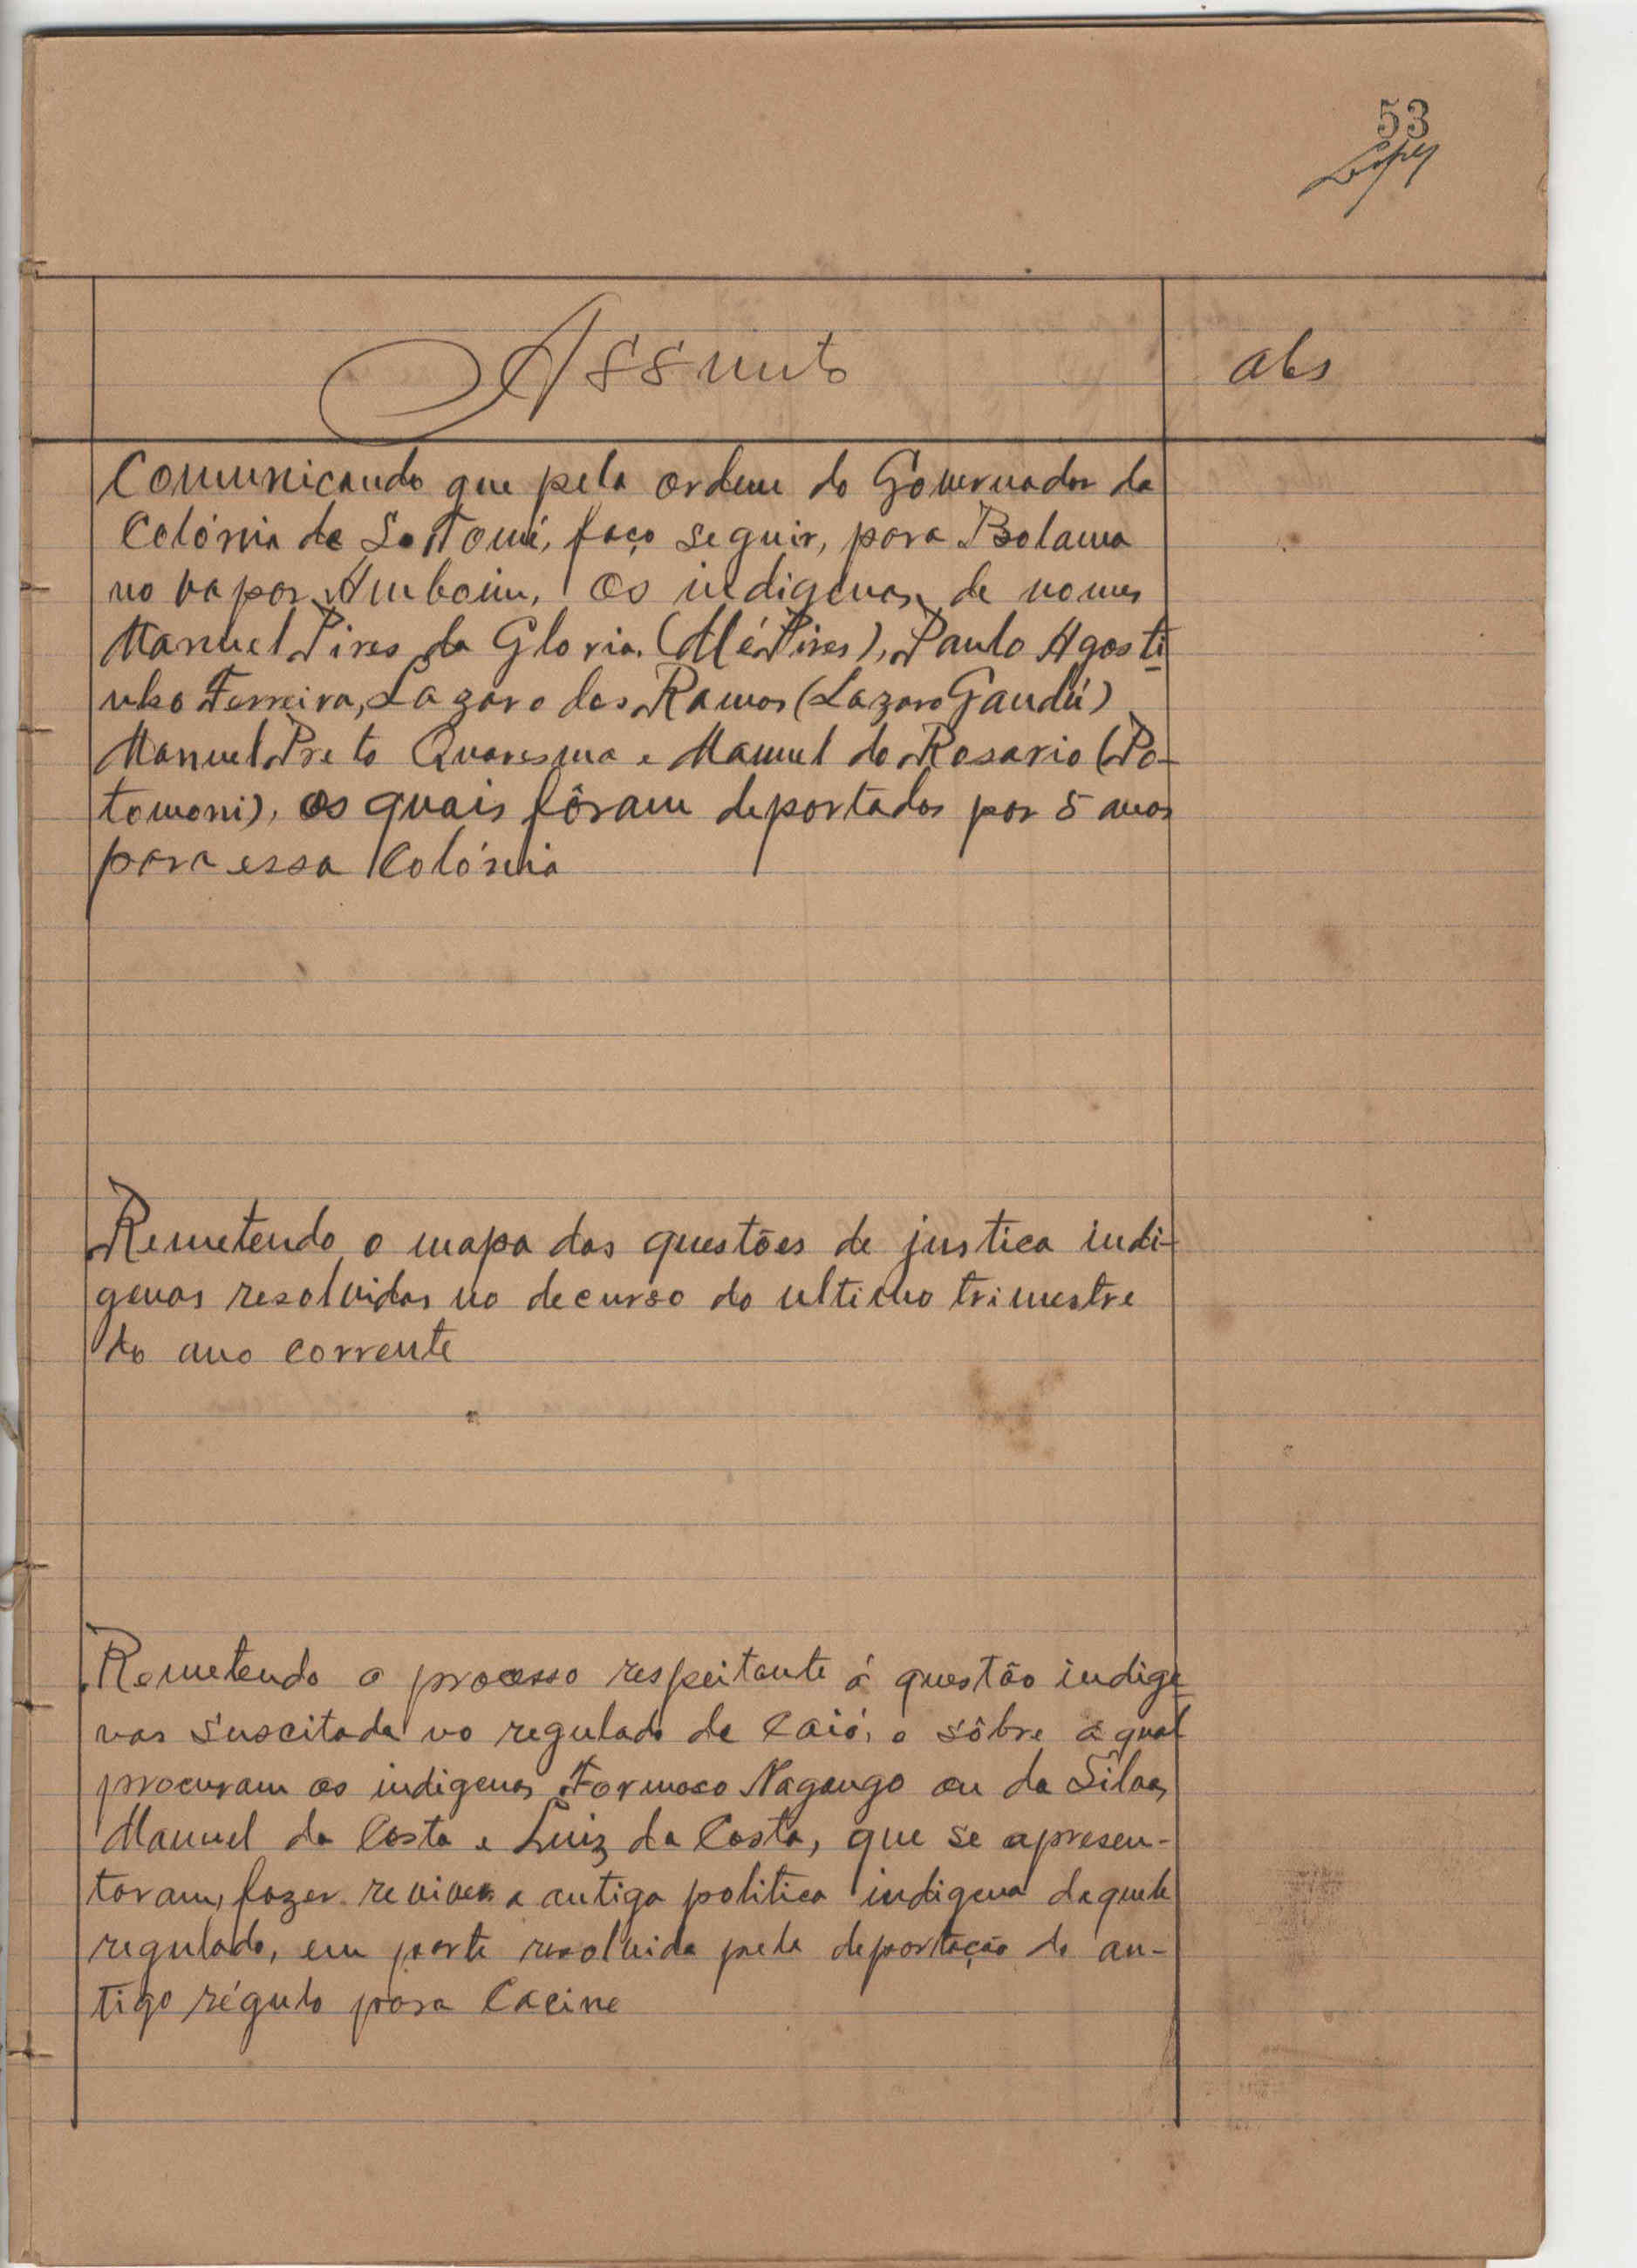 53
Assunto
obs
Comunicando que pela ordem do Governador da
Colónia de S. Tomé, faço seguir, para Bolama
no vapor Amboim, os indigenas de nomes
Manuel Pires da Gloria (Mé Pires), Paulo Agosti
nho Ferreira, Lazaro dos Ramos (Lazaro Gandú)
Manuel Preto Quaresma e Manuel do Rosario (Po-
tomoni), os quais fôram deportados por 5 anos
para essa Colónia
Remetendo o mapa das questões de justica indi-
genas resolvidas no decurso do ultimo trimestre
do ano corrente
Remetendo o processo respeitante á questão indige
nas suscitada no regulado de Caió, e sôbre a qual
procuram os indigenas Formoso Nagango ou da Silva,
Manuel da Costa e Luiz da Costa, que se apresen-
taram, fazer reviver a antiga politica indigena daquele
regulado, em parte resolvida pela deportação do an-
tigo régulo para Cacine